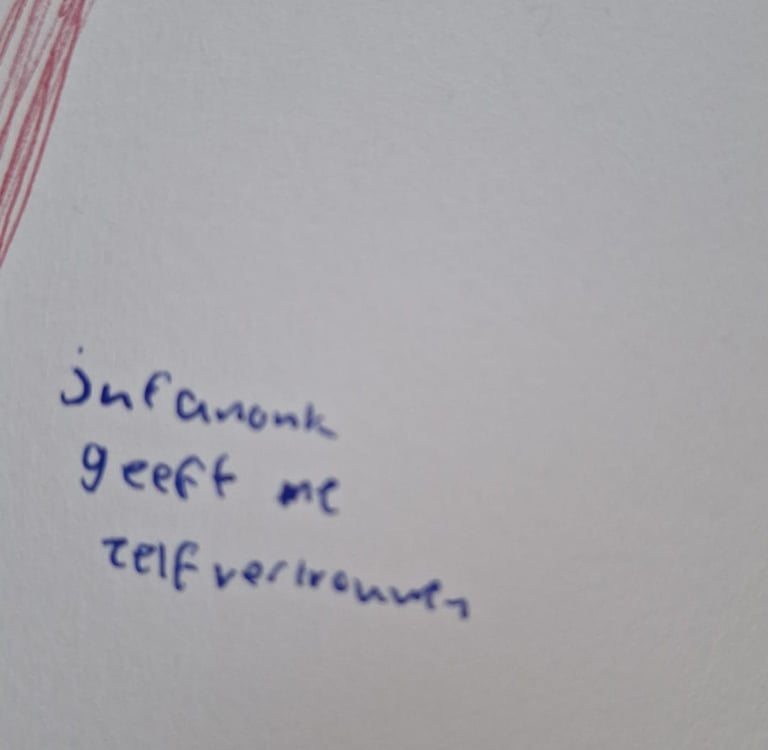 juf anonk
geeft me
zelfvertrouwen